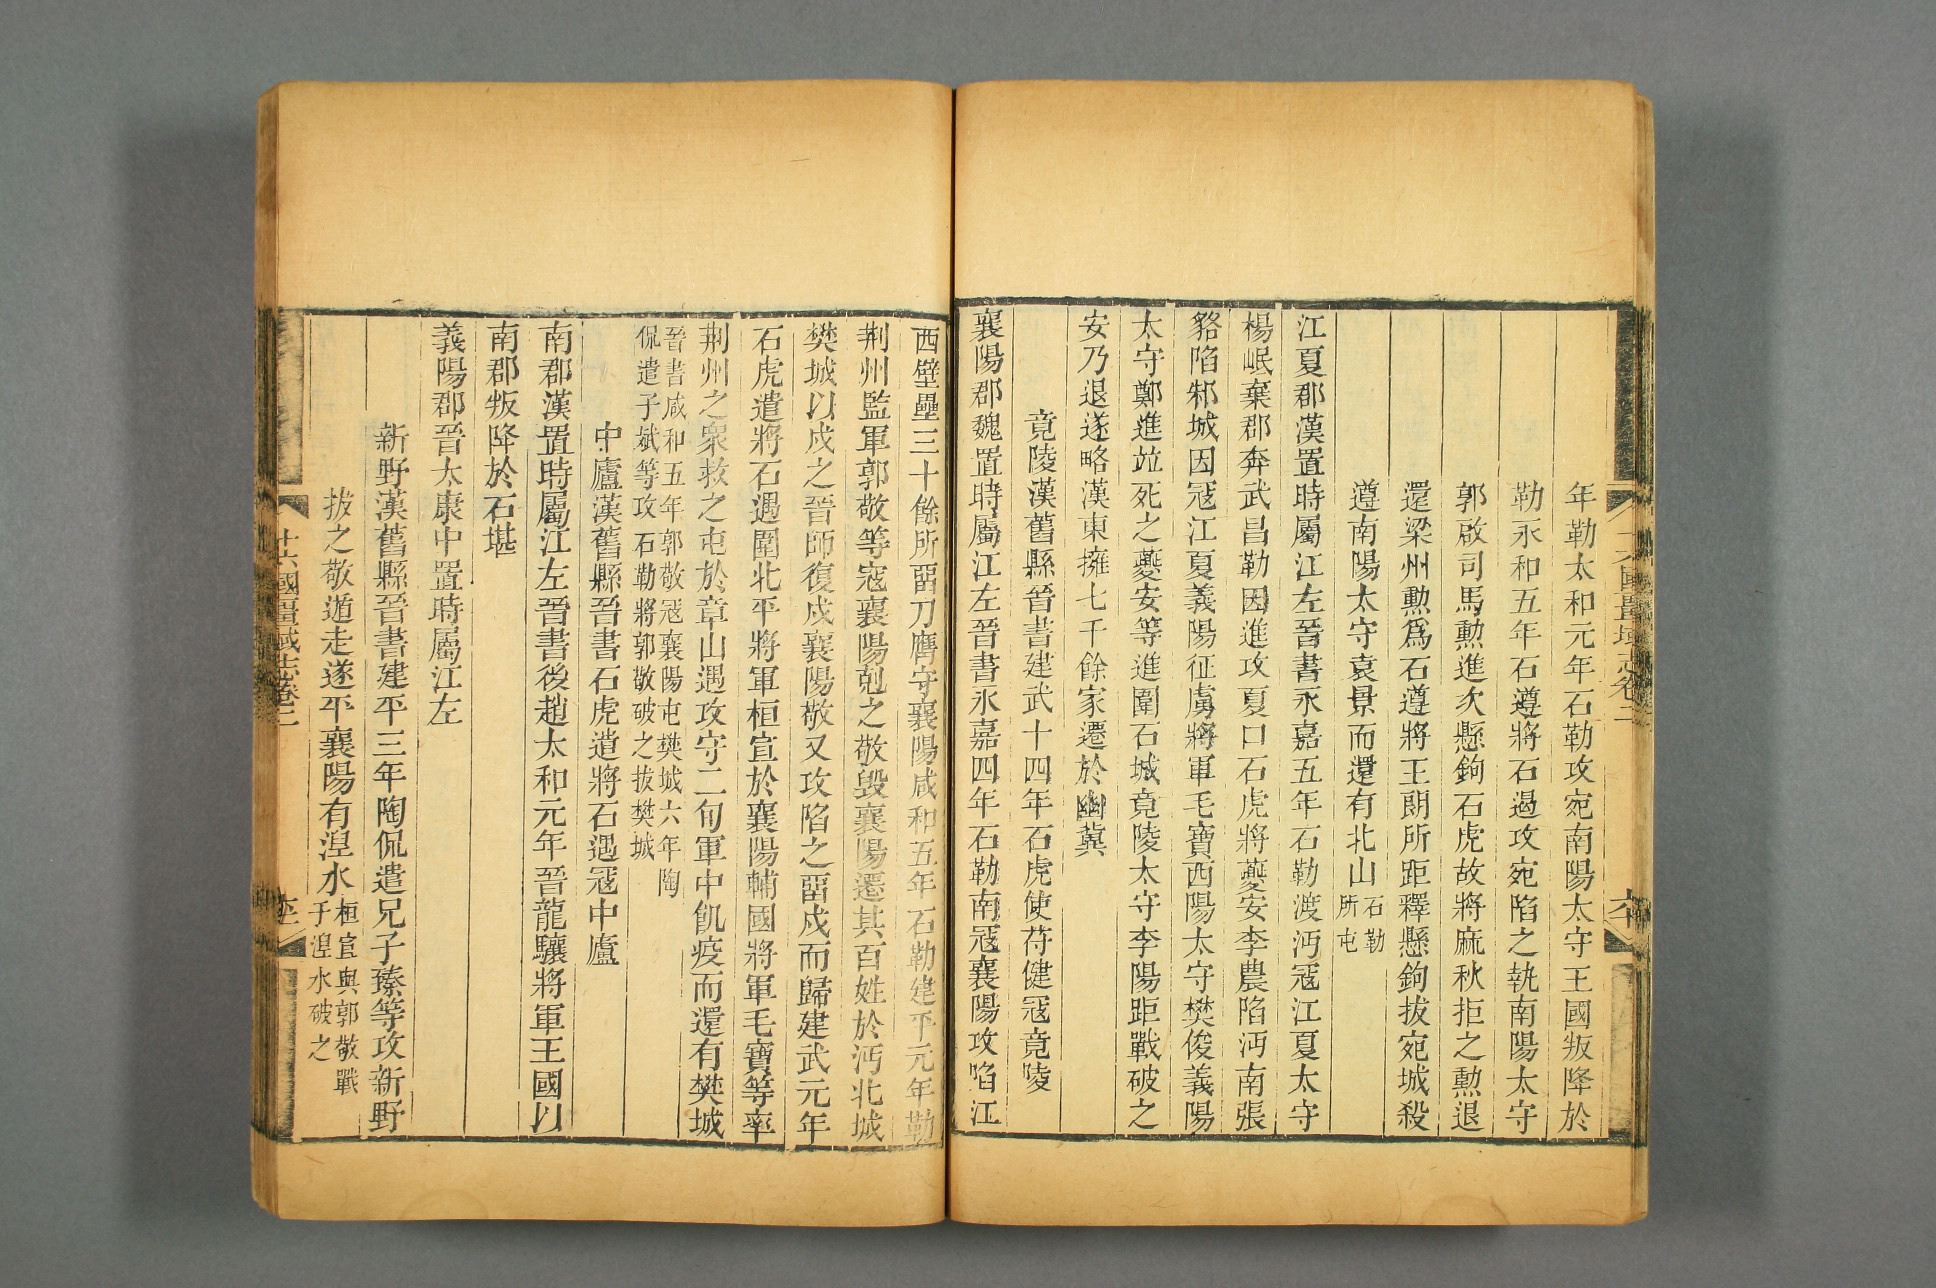 年勒太和元年石勒攻宛南陽太守王國叛降於
勒永和五年石遵將石遇攻宛陷之執南陽太守
郭啟司馬勲進次懸鉤石虎故將麻秋拒之勲退
還梁州勲爲石遵將王朗所距釋懸鉤拔宛城殺
遵南陽太守袁景而還有北山石勒
所屯
江夏郡漢置時屬江左晉書永嘉五年石勒渡沔寇江夏太守
楊岷棄郡奔武昌勒因進攻夏口石虎將夔安李農陷沔南張
貉陷邾城因寇江夏義陽征虜將軍毛寶西陽太守樊俊義陽
太守鄭進竝死之夔安等進圍石城竟陵太守李陽距戰破之
安乃退遂略漢東擁七千餘家遷於幽冀
竟陵漢舊縣晉書建武十四年石虎使苻健寇竟陵
襄陽郡魏置時屬江左晉書永嘉四年石勒南寇襄陽攻陷江
西壁壘三十餘所畱刀膺守襄陽咸和五年石勒建平元年勒
荆州監軍郭敬等寇襄陽剋之敬毁襄陽遷其百姓於沔北城
樊城以戍之晉師復戍襄陽敬又攻陷之畱戍而歸建武元年
石虎遣將石遇圍北平將軍桓宣於襄陽輔國將軍毛寶等率
荆州之衆救之屯於章山遇攻守二旬軍中飢疫而還有樊城
晉書咸和五年郭敬寇襄陽屯樊城六年陶
侃遣子斌等攻石勒將郭敬破之拔樊城
中廬漢舊縣晉書石虎遣將石遇寇中廬
南郡漢置時屬江左晉書後趙太和元年晉龍驤將軍王國以
南郡叛降於石堪
義陽郡晉太康中置時屬江左
新野漢舊縣晉書建平三年陶侃遣兄子臻等攻新野
拔之敬遁走遂平襄陽有湼水桓宣與郭敬戰
于湼水破之
十六國疆域志卷二